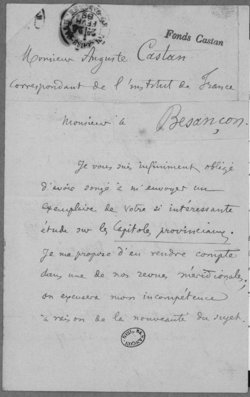 Fonds Castan
Monsieur Auguste Castan
Correspondant de l'institut de France
Monsieur à Besançon.
Je vous suis infiniment obligé
d'avoir songé à m'envoyer un
exemplaire de votre si intéressante
étude sur les Capitoles provinciaux.
Je me propose d'en rendre compte
dans une de nos revues méridionales,
on excusera mon incompétence
à raison de la nouveauté du sujet.